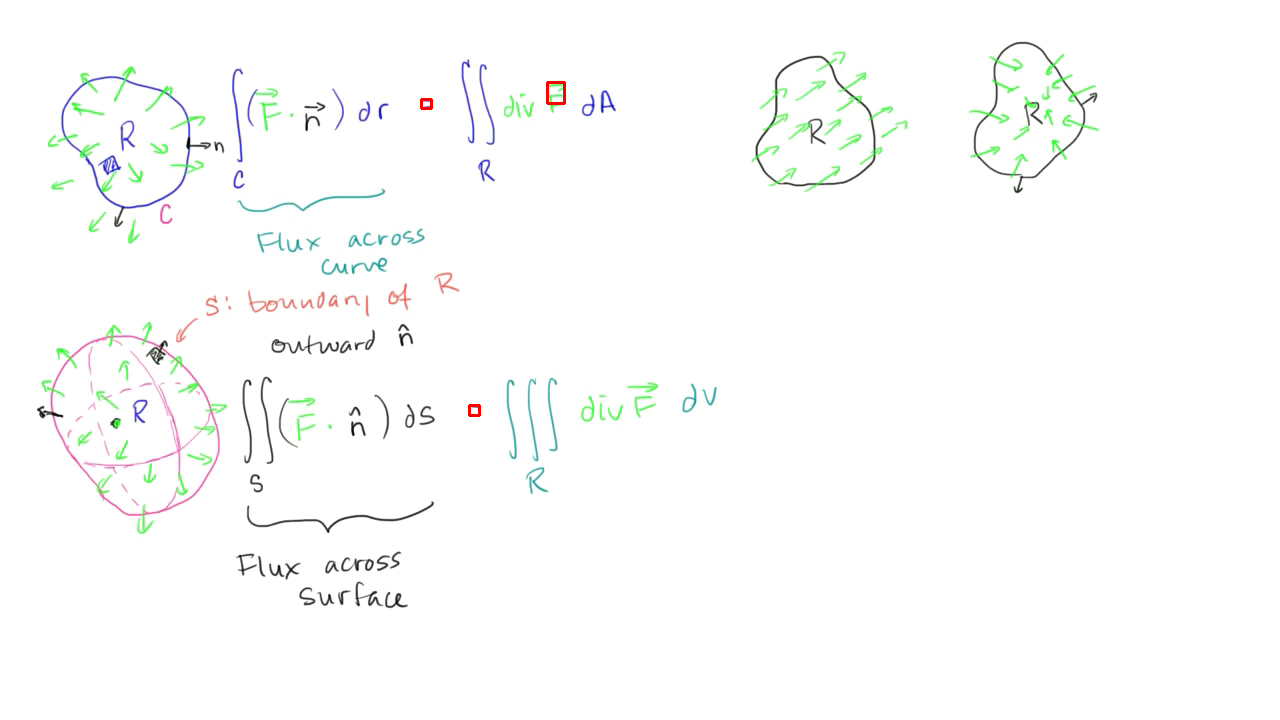 ∫_C (F⃗ · n⃗) dr ∬_R div F⃗ dA
R
n
C
R
R
Flux across
curve
S: boundary of R
outward n̂
R
∬_S (F⃗ · n̂) dS ∭_R div F⃗ dV
Flux across
surface